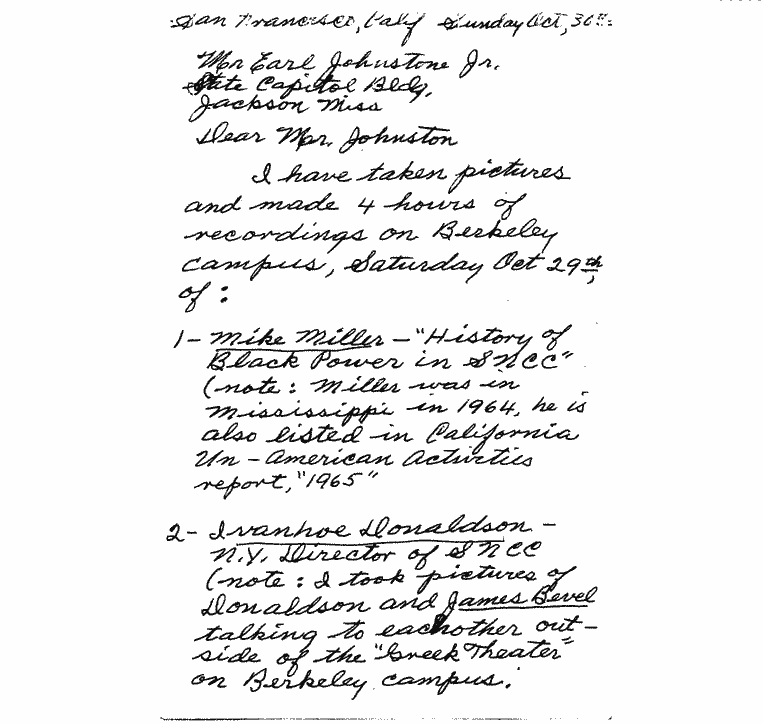 San Francisco, Calif Sunday Oct, 30th:
Mr Earl Johnstone Jr.
State Capitol Bldg,
Jackson Miss
Dear Mr. Johnston
I have taken pictures
and made 4 hours of
recordings on Berkeley
campus, Saturday Oct 29th,
of:
1- Mike Miller - "History of
Black Power in SNCC"
(note: Miller was in
Mississippi in 1964, he is
also listed in California
Un-American Activities
report, "1965"
2- Ivanhoe Donaldson -
N.Y. Director of SNCC
(note: I took pictures of
Donaldson and James Bevel
talking to eachother out-
side of the "Greek Theater"
on Berkeley campus.